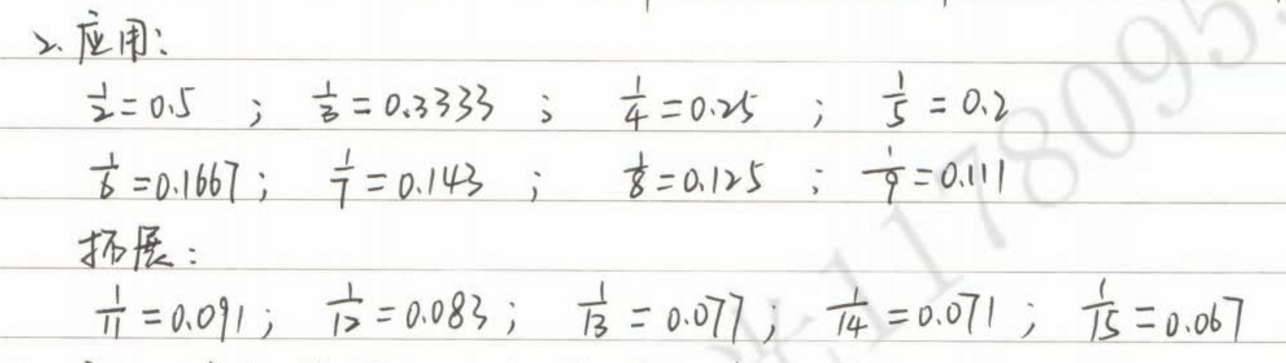 2. 应用：
1/2 = 0.5 ; 1/3 = 0.3333 ; 1/4 = 0.25 ; 1/5 = 0.2
1/6 = 0.1667 ; 1/7 = 0.143 ; 1/8 = 0.125 ; 1/9 = 0.111
拓展：
1/11 = 0.091 ; 1/12 = 0.083 ; 1/13 = 0.077 ; 1/14 = 0.071 ; 1/15 = 0.067